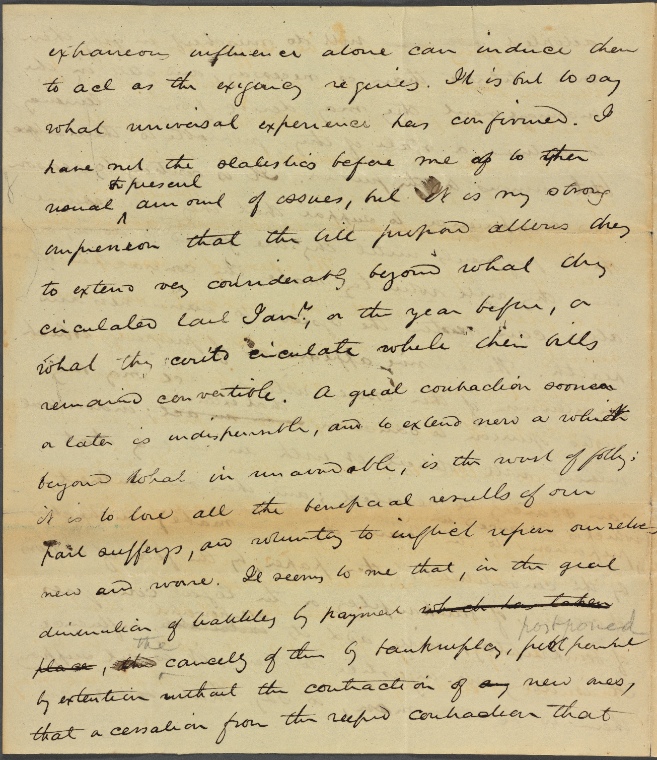 extraneous influence alone can induce them
to act as the exigency requires. It is but to say
what universal experience has confirmed. I
have not the statistics before me as to their
the present
usual amount of issues, but it is my strong
impression that the bill proposed allows them
to extend very considerably beyond what they
circulated last Jany, or the year before, or
what they could circulate while their bills
remained convertible. A great contraction sooner
or later is indispensible, and to extend now a
beyond what is unavoidable, is the worst of folly;
it is to lose all the beneficial results of our
past sufferings, and voluntary to inflict upon ourselves
new and worse. It seems to me that, in the great
diminution of liabilities by payment which has taken
postponed
place, the cancelling of them by bankruptcy, postponed
by extention without the contraction of any new ones,
that a cessation from the contraction that